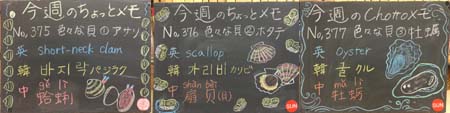 今週のちょっとメモ
No.375 色々な貝① アサリ
英 short-neck clam
韓 바지락 パジラク
gé lí
中 蛤蜊
今週のちょっとメモ
No.376 色々な貝② ホタテ
英 scallop
韓 가리비 カリビ
shàn bèi
中 扇貝(貝)
SUN
今週のChottoメモ
No.377 色々な貝③ 牡蠣
英 Oyster
韓 굴 クル
mǔ lì
中 牡蛎
SUN